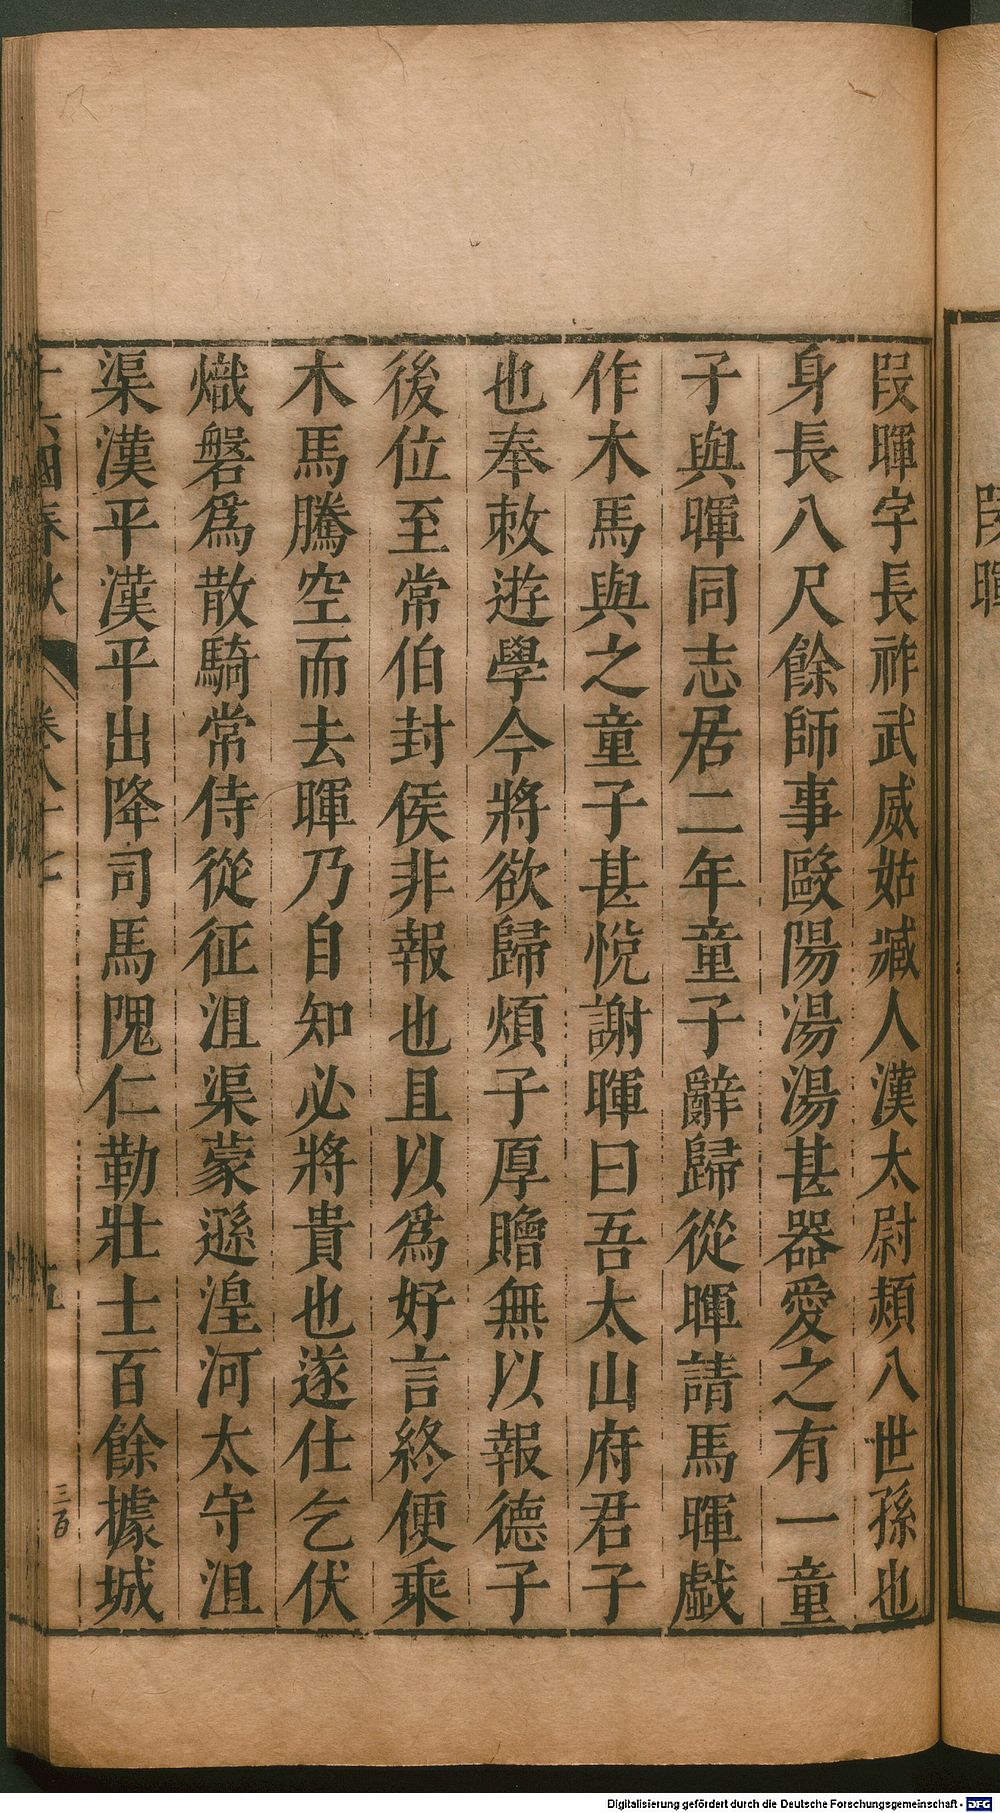 段暉
段暉字長祚武威姑臧人漢太尉熲八世孫也
身長八尺餘師事歐陽湯湯甚器愛之有一童
子與暉同志居二年童子辭歸從暉請馬暉戲
作木馬與之童子甚悅謝暉曰吾太山府君子
也奉敕遊學今將欲歸煩子厚贈無以報德子
後位至常伯封侯非報也且以為好言終便乘
木馬騰空而去暉乃自知必將貴也遂仕乞伏
熾磐爲散騎常侍從征沮渠蒙遜湟河太守沮
渠漢平漢平出降司馬隗仁勒壯士百餘據城
十六國春秋 卷八十七 五
三百
Digitalisierung gefördert durch die Deutsche Forschungsgemeinschaft - DFG